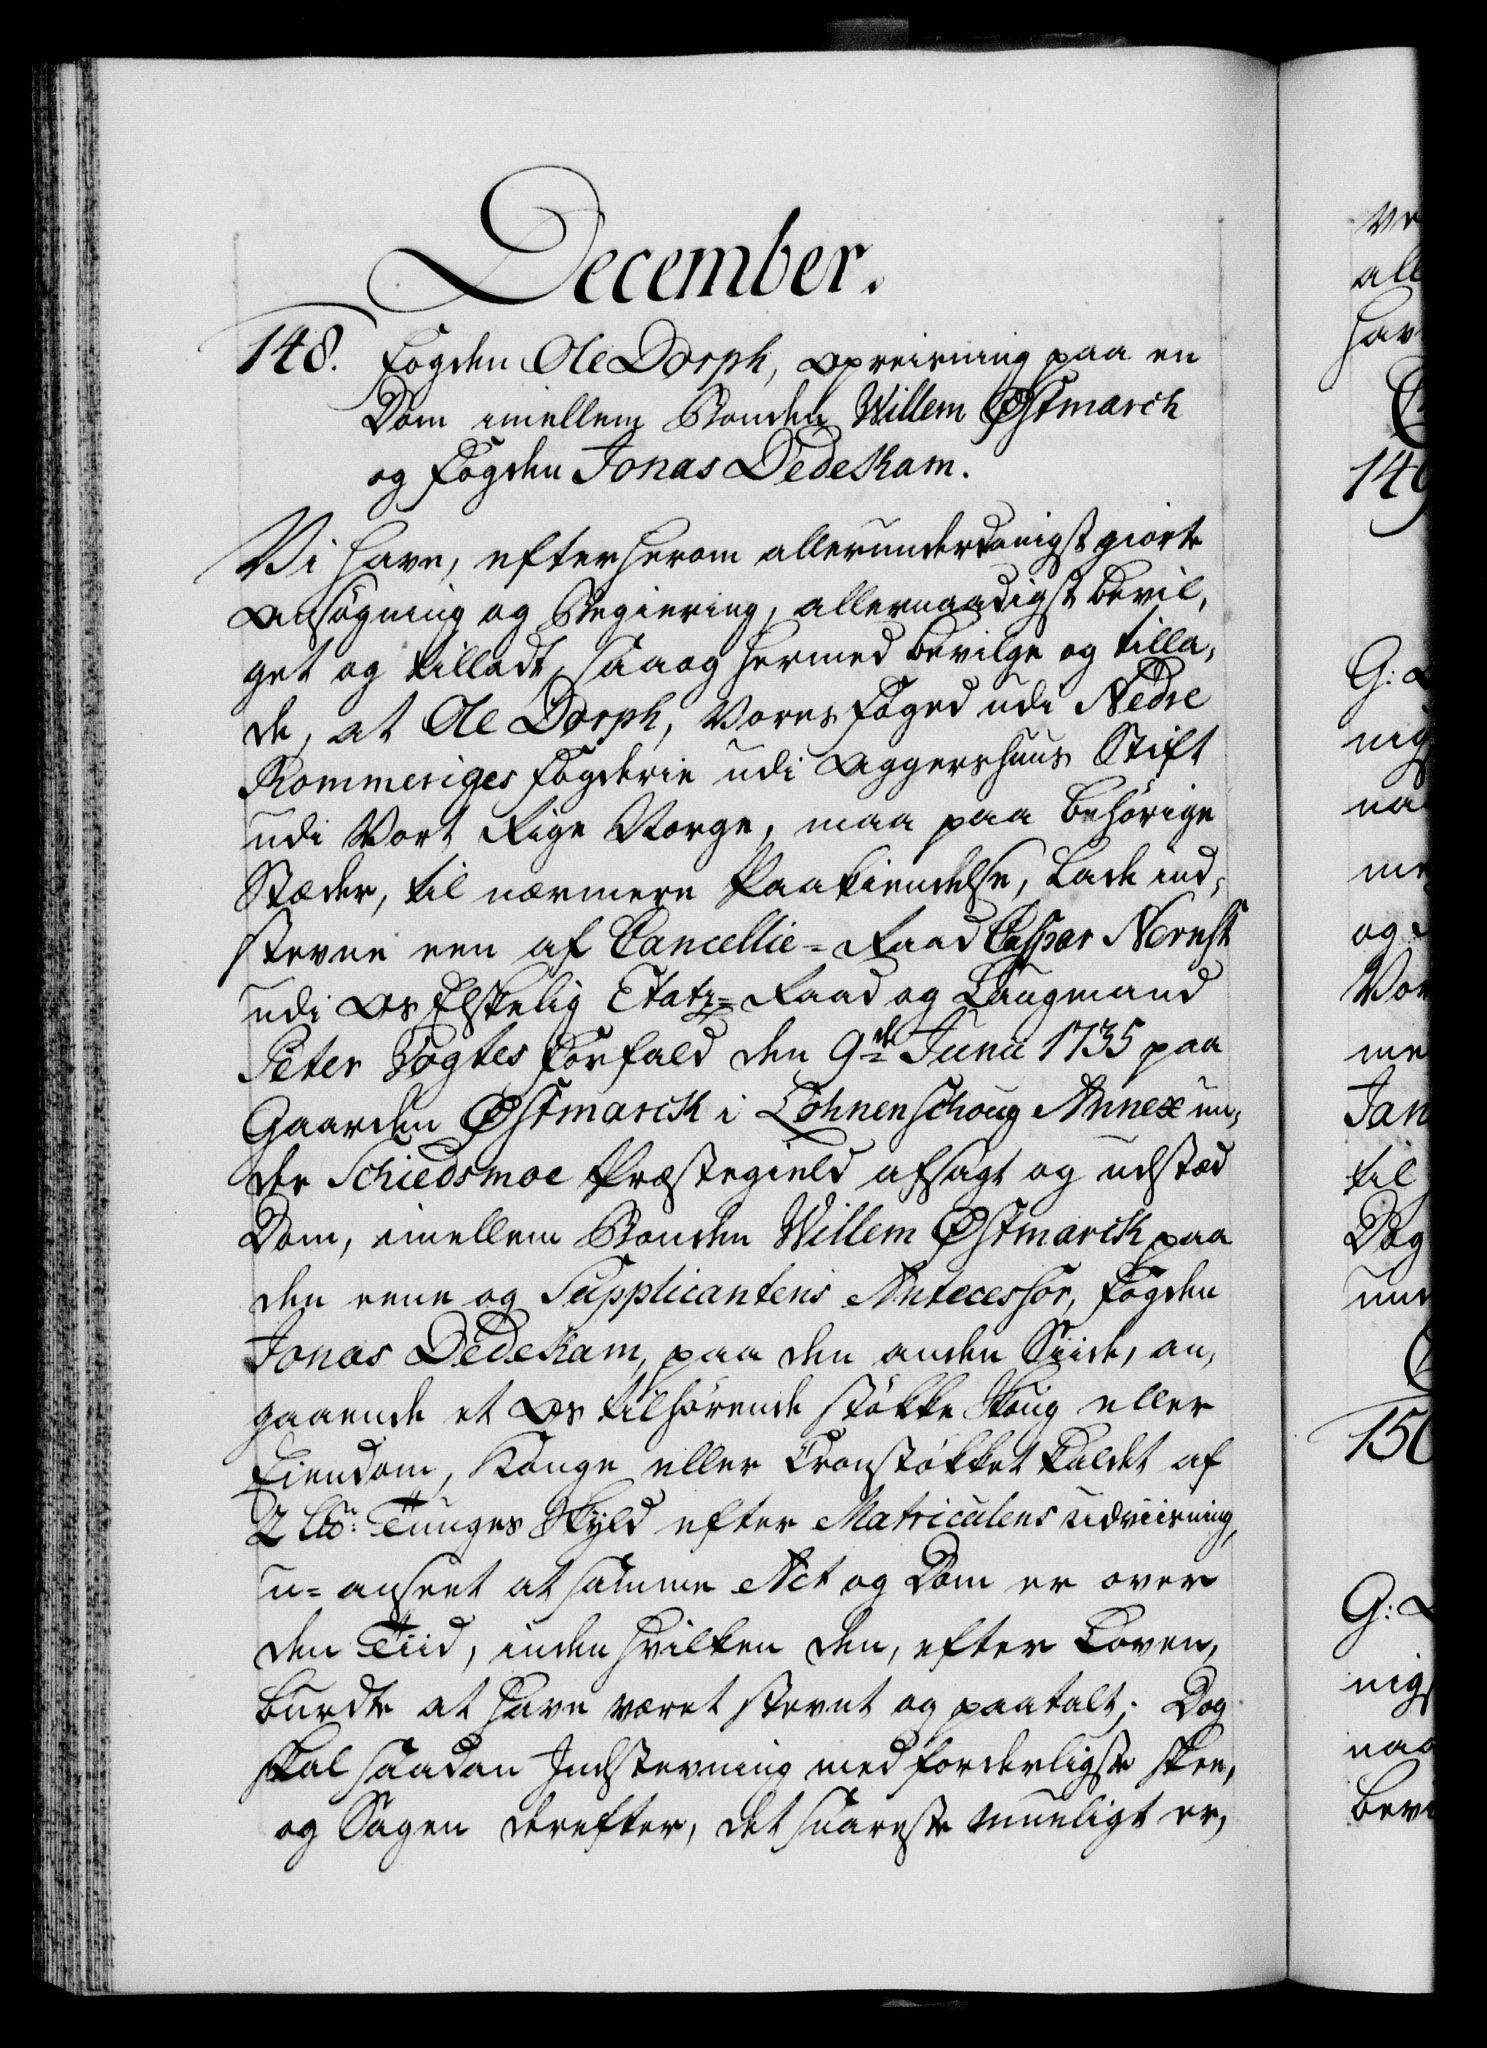 December.
148. Fogden Ole Dorph, opreisning paa en
Dom imellem Bonden Willem Østmarck
og Fogden Jonas Dedekam.
Vi have, efter herom allerunderdanigst giorte
Ansøgning og Begiering, allernaadigst bevil,
get og tilladt, saa og hermed bevilge og tilla,
de, at Ole Dorph, Vores Foged udi Nedre
Rommeriges Fogderie udi Aggershuus Stift
udi Vort Rige Norge, maa paa behørige
Stæder, til nærmere Paakiendelse, lade ind,
stevne een af Cancellie=Raad Casper Nernst
udi Os Elskelig Etatz=Raad og Laugmand
Peter Vogtes Forfald den 9de Junii 1735 paa
Gaarden Østmarck i Lohnenschoug Annex un,
der Schiedsmoe Præstegield afsagt og udstæd
Dom, imellem Bonden Willem Østmarck paa
den eene og Supplicantens Antecessor, Fogden
Jonas Dedekam, paa den anden Siide, an,
gaaende et Os tilhørende støkke Skoug eller
Eiendom, Konge eller Cronstøkket kaldet af
2 Lb: Tunges Skyld efter Matriculens udviisning,
u=anseet at samme Act og Dom er over
den Tiid, inden hvilken den, efter Loven,
burdte at have været stevnt og paatalt; Dog
skal saadan Indstevning med forderligste skee,
og Sagen derefter, det snareste mueligt er,